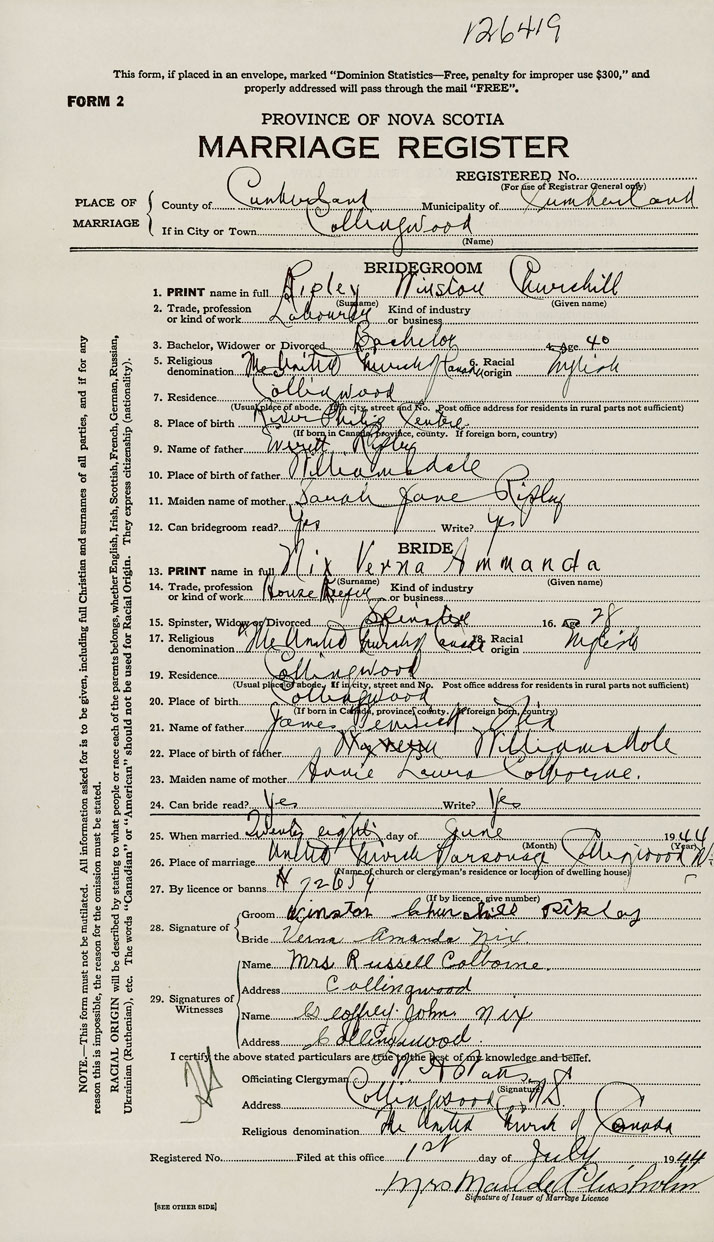 126419
This form, if placed in an envelope, marked "Dominion Statistics—Free, penalty for improper use $300," and
properly addressed will pass through the mail "FREE".
FORM 2
PROVINCE OF NOVA SCOTIA
MARRIAGE REGISTER
REGISTERED No.
(For use of Registrar General only)
PLACE OF MARRIAGE
County of Cumberland Municipality of Cumberland
If in City or Town Collingwood
(Name)
BRIDEGROOM
1. PRINT name in full Ripley Winston Churchill
(Surname) (Given name)
2. Trade, profession or kind of work Labourer Kind of industry or business
3. Bachelor, Widower or Divorced Bachelor 4. Age 40
5. Religious denomination The United Church of Canada 6. Racial origin English
7. Residence Collingwood
(Usual place of abode. If in city, street and No. Post office address for residents in rural parts not sufficient)
8. Place of birth River Philip Centre
(If born in Canada, province, county. If foreign born, country)
9. Name of father Everett Ripley
10. Place of birth of father Williamsdale
11. Maiden name of mother Sarah Jane Ripley
12. Can bridegroom read? Yes Write? yes
BRIDE
13. PRINT name in full Nix Verna Ammanda
(Surname) (Given name)
14. Trade, profession or kind of work House Keeper Kind of industry or business
15. Spinster, Widow or Divorced Spinster 16. Age 28
17. Religious denomination The United Church of Canada 18. Racial origin English
19. Residence Collingwood
(Usual place of abode. If in city, street and No. Post office address for residents in rural parts not sufficient)
20. Place of birth Collingwood
(If born in Canada, province, county. If foreign born, country)
21. Name of father James
22. Place of birth of father Williamsdale
23. Maiden name of mother Annie Laura Colborne.
24. Can bride read? Yes Write? Yes
25. When married Twenty eight day of June 1944
(Month) (Year)
26. Place of marriage United Church Parsonage Collingwood N.S.
(Name of church or clergyman's residence or location of dwelling house)
27. By licence or banns
(If by licence, give number)
28. Signature of
Groom Winston Churchill Ripley
Bride Verna Amanda Nix.
29. Signatures of Witnesses
Name Mrs Russell Colborne.
Address Collingwood
Name Geoffrey John Nix
Address Collingwood.
I certify the above stated particulars are true to the best of my knowledge and belief.
Officiating Clergyman
(Signature)
Address Collingwood N.S.
Religious denomination The United Church of Canada
Registered No. Filed at this office 1st day of July 1944
Mrs Maude Chisholm
Signature of Issuer of Marriage Licence
[SEE OTHER SIDE]
NOTE.—This form must not be mutilated. All information asked for is to be given, including full Christian and surnames of all parties, and if for any
reason this is impossible, the reason for the omission must be stated.
RACIAL ORIGIN will be described by stating to what people or race each of the parents belongs, whether English, Irish, Scottish, French, German, Russian,
Ukrainian (Ruthenian), etc. The words "Canadian" or "American" should not be used for Racial Origin. They express citizenship (nationality).